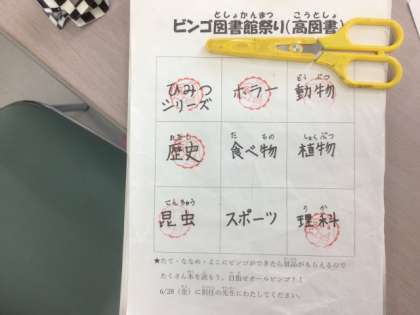 ビンゴ図書館祭り(高図書)
としょかんまつ こうとしょ
ひみつ
シリーズ
ホラー
どうぶつ
動物
れきし
歴史
た もの
食べ物
しょくぶつ
植物
こんちゅう
昆虫
スポーツ
りか
理科
★たて・ななめ・よこにビンゴができたら景品がもらえるので
たくさん本を読もう。目指せオールビンゴ!!
6/28(金)に担任の先生にわたしてください。